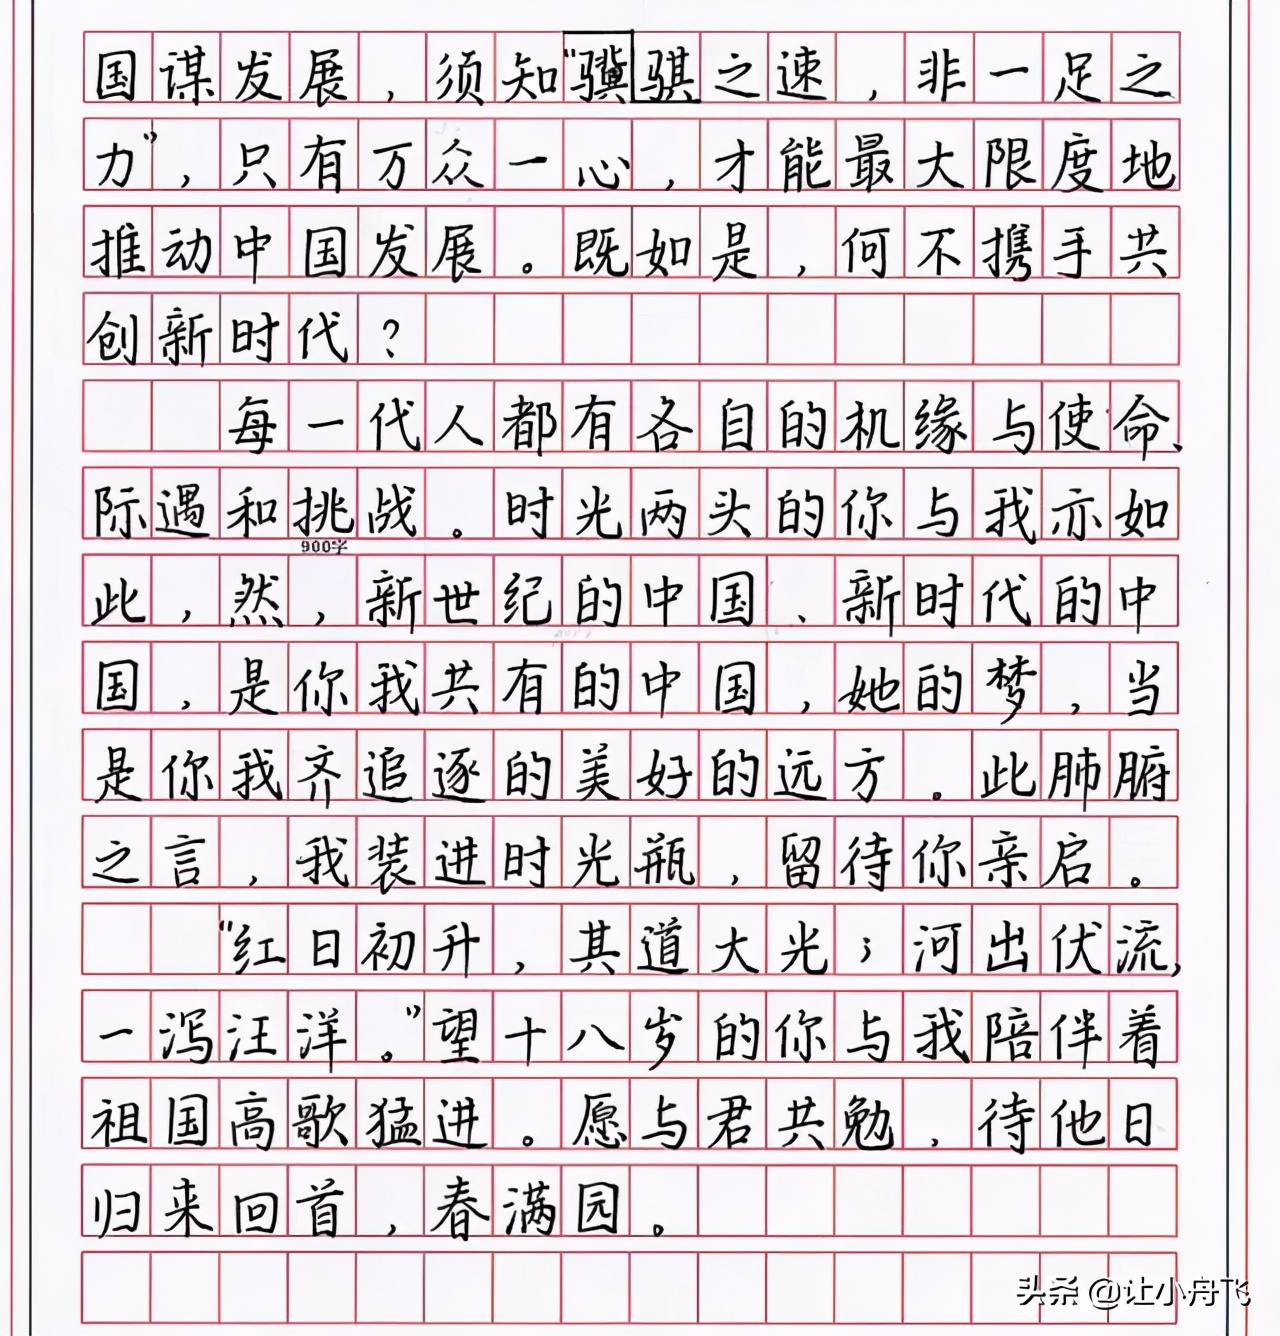 国谋发展，须知“骥骐之速，非一足之
力”，只有万众一心，才能最大限度地
推动中国发展。既如是，何不携手共
创新时代？
每一代人都有各自的机缘与使命、
际遇和挑战。时光两头的你与我亦如
900字
此，然，新世纪的中国、新时代的中
国，是你我共有的中国，她的梦，当
是你我齐追逐的美好的远方。此肺腑
之言，我装进时光瓶，留待你亲启。
“红日初升，其道大光；河出伏流，
一泻汪洋。”望十八岁的你与我陪伴着
祖国高歌猛进。愿与君共勉，待他日
归来回首，春满园。
头条 @让小舟飞